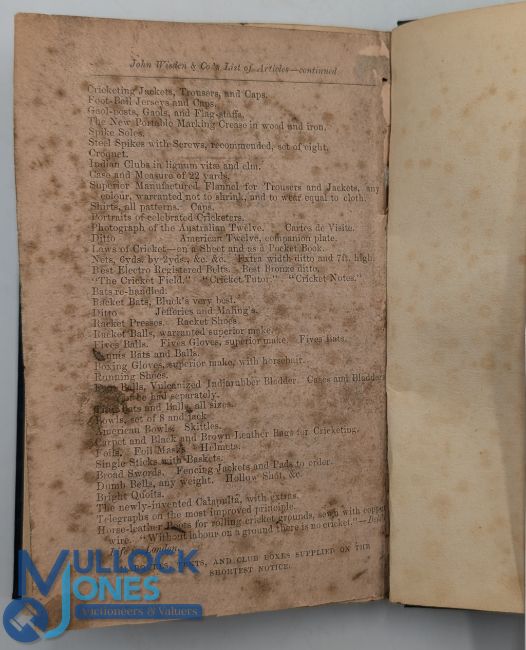 John Wisden & Co.'s List of Articles—continued
Cricketing Jackets, Trousers, and Caps.
Foot-Ball Jerseys and Caps.
Gaol-posts, Gaols, and Flag-staffs.
The New Portable Marking Crease in wood and iron.
Spike Soles.
Steel Spikes with Screws, recommended, set of eight.
Croquet.
Indian Clubs in lignum vitæ and elm.
Case and Measure of 22 yards.
Superior Manufactured Flannel for Trousers and Jackets, any
colour, warranted not to shrink, and to wear equal to cloth.
Shirts, all patterns. Caps.
Portraits of celebrated Cricketers.
Photograph of the Australian Twelve. Cartes de Visite.
Ditto American Twelve, companion plate.
Laws of Cricket—on a Sheet and as a Pocket Book.
Nets, 6yds. by 2yds., &c. &c. Extra width ditto and 7ft. high.
Best Electro Registered Belts. Best Bronze ditto.
"The Cricket Field." "Cricket Tutor." "Cricket Notes."
Bats re-handled.
Racket Bats, Bluck's very best.
Ditto Jefferies and Maling's.
Racket Presses. Racket Shoes
Racket Balls, warranted superior make.
Fives Balls. Fives Gloves, superior make. Fives Bats.
Tennis Bats and Balls.
Boxing Gloves, superior make, with horsehair.
Running Shoes.
Balls, Vulcanized Indiarubber Bladder. Cases and Bladders
be had separately.
Bats and Balls, all sizes.
Bowls, set of 8 and jack
American Bowls. Skittles.
Carpet and Black and Brown Leather Bags for Cricketing.
Foils. Foil Masks Helmets.
Single Sticks with Baskets.
Broad Swords. Fencing Jackets and Pads to order.
Dumb Bells, any weight. Hollow Shot, &c.
Bright Quoits.
The newly-invented Catapulta, with extras.
Telegraphs on the most improved principle.
Horse-leather Boots for rolling cricket grounds, sewn with copper
wire. "Without labour on a ground there is no cricket."—
London.
TENTS, AND CLUB BOXES SUPPLIED ON THE
SHORTEST NOTICE.
MULLOCK
JONES
Auctioneers & Valuers